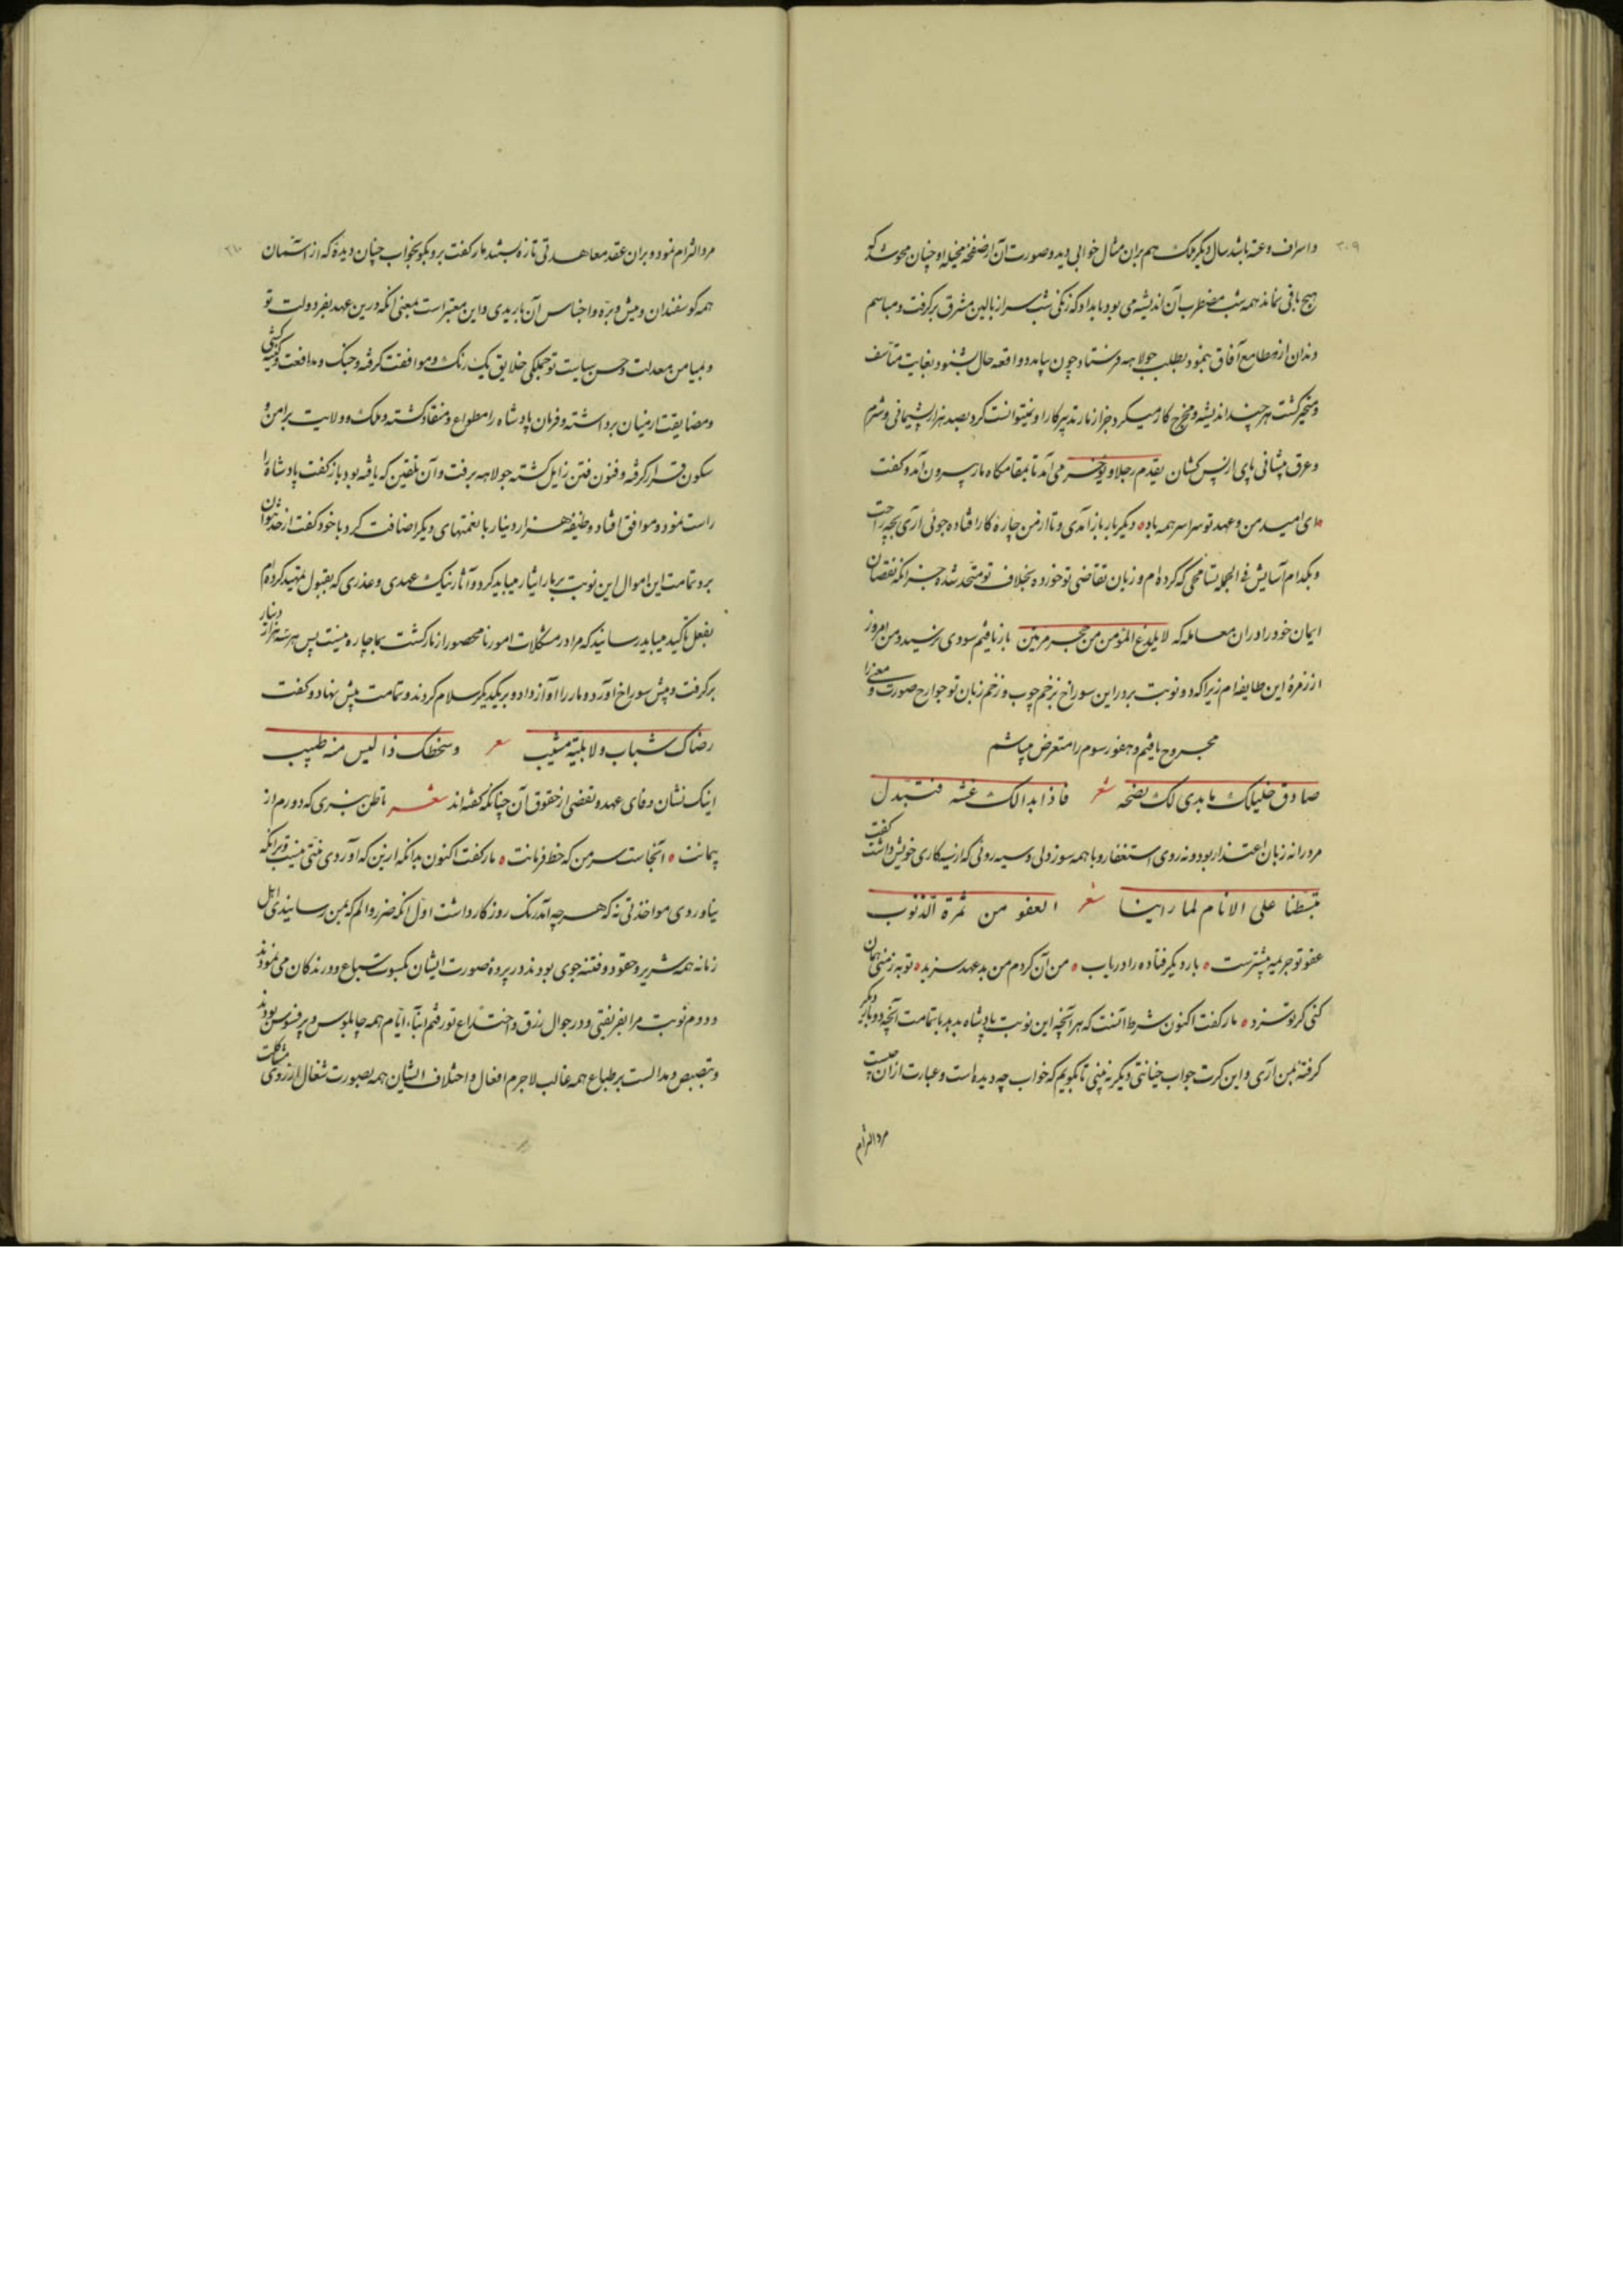 ۳۰۹
و اسراف وعته باشد سال دیگر ملک هم بران مثال خوابی دید و صورت آن از صفحهٔ مخیله او چنان محو شد که
هیچ باقی نماند همه شب مضطرب آن اندیشه می بود بامداد که زنگی شب سر از بالین مشرق برگرفت و مباسم
دندان از مطامع آفاق بنمود بطلب جولاهه فرستاد چون بیامد و واقعه حال بشنود بغایت متأسف
و متحیر گشت هر چند اندیشه و مخرج کار میکرد جز از مار تدبیر کار او نمیتوانست کرد بصد هزار پشیمانی و شرم
و عرق پیشانی پای از پس کشان یقدم رجلا و یوخر می آمد تا بمقامگاه مار بیرون آمد و گفت
ای امید من و عهد تو سراسر همه باد دیگر بار باز آمدی و تا از من چارهٔ کار افتاده جوئی آری بچه راحت
و بکدام آسایش فی الجمله تسامحی که کرده ام و زبان تقاضی تو خورده بخلاف تو متحد شده جز آنکه نقصان
ایمان خود را دران معامله که لا یلدغ المؤمن من جحر مرتین باز یافتم سودی نرسید و من امروز
از زمرهٔ این طایفه ام زیرا که دو نوبت بر در این سوراخ بزخم چوب و زخم زبان تو جوارح صورت و معنی را
مجروح یافتم و هفوز رسوم را متعرض میباشم
صادق خلیلک ما بدی لک نصحه شعر فاذا بدا لک غشه فتبدل
مرد را نه زبان اعتذار بود و نه روی استغفار و با همه سوز دلی و سیه روئی که از سیه کاری خویش داشت گفت
تبسطنا علی الانام لما راینا شعر العفو من ثمرة الذنوب
عفو تو جریمه بیشترست بار دیگر فتاده را دریاب من آن کردم من بد عهد سزید تو به ز منی همان
کنی کز تو سزد مار گفت اکنون شرط آنست که هر آنچه این نوبت پادشاه بدهد با تمامت آنچه دو بار دیگر
گرفتهٔ بمن آری و این کرت جواب خیانتی دیگر نه بینی تا بگویم که خواب چه دیده است و عبارت از آن چیست
مرد التزام
۳۱۰
مرد التزام نمود و بران عقد معاهدتی تازه ببستند مار گفت برو بگو بخواب چنان دیدهٔ که از آسمان
همه گوسفندان و میش و بره و اجناس آن باریدی و این معتبر است بمعنی آنکه درین عهد بفر دولت تو
و بمیامن معدلت و حسن سیاست تو جملگی خلایق یک رنگ و موافقت گرفته و جنگ و مدافعت و کینه کشی
و مضایقت از میان برداشته و فرمان پادشاه را مطواع و منقاد گشته و ملک و ولایت بر امن و
سکون قرار گرفته و فنون فتن زایل گشته جولاهه برفت و آن تلقین که یافته بود باز گفت پادشاه را
راست نمود و موافق افتاد و وظیفه هزار دینار با نعمتهای دیگر اضافت کرد با خود گفت از خذ توان
برد تمامت این اموال این نوبت بر مار ایثار میباید کرد و آثار نیک عهدی و عذری که بقبول تمهید کرده ام
بفعل تأکید میباید رسانید که مرا در مشکلات امور نا محصور از مار گشت بما چاره نیست پس هر سه هزار دینار
برگرفت و پیش سوراخ آورد و مار را آواز داد و بر یکدیگر سلام کردند و تمامت پیش نهاد و گفت
رضاک شباب و لا یلیه مشیب شعر و سخطک ذا لیس منه طبیب
اینک نشان وفای عهد و تفضی از حقوق آن چنانکه گفته اند شعر تا ظن نبری که دورم از
پیمانت آنجاست سر من که خط فرمانت مار گفت اکنون بدانکه ازین که آوردی منتی نیست و برآنکه
نیاوردی مواخذتی نه که هر چه آمد رنگ روزگار داشت اول آنکه ضرر و الم که بمن رسانیدی اهل
زمانه همه شریر و حقود و فتنه جوی بودند در پردهٔ صورت ایشان بکسوت سباع و درندگان می نمودند
و دوم نوبت مرا بفریفتی و در جوال رزق و اختراع تو رفتم ابنآء ایام همه چاپلوس و پر فسوس بودند
و تبصبص و مدالست بر طباع همه غالب لاجرم افعال و اختلاف ایشان همه بصورت شغال از روی مشاکلت